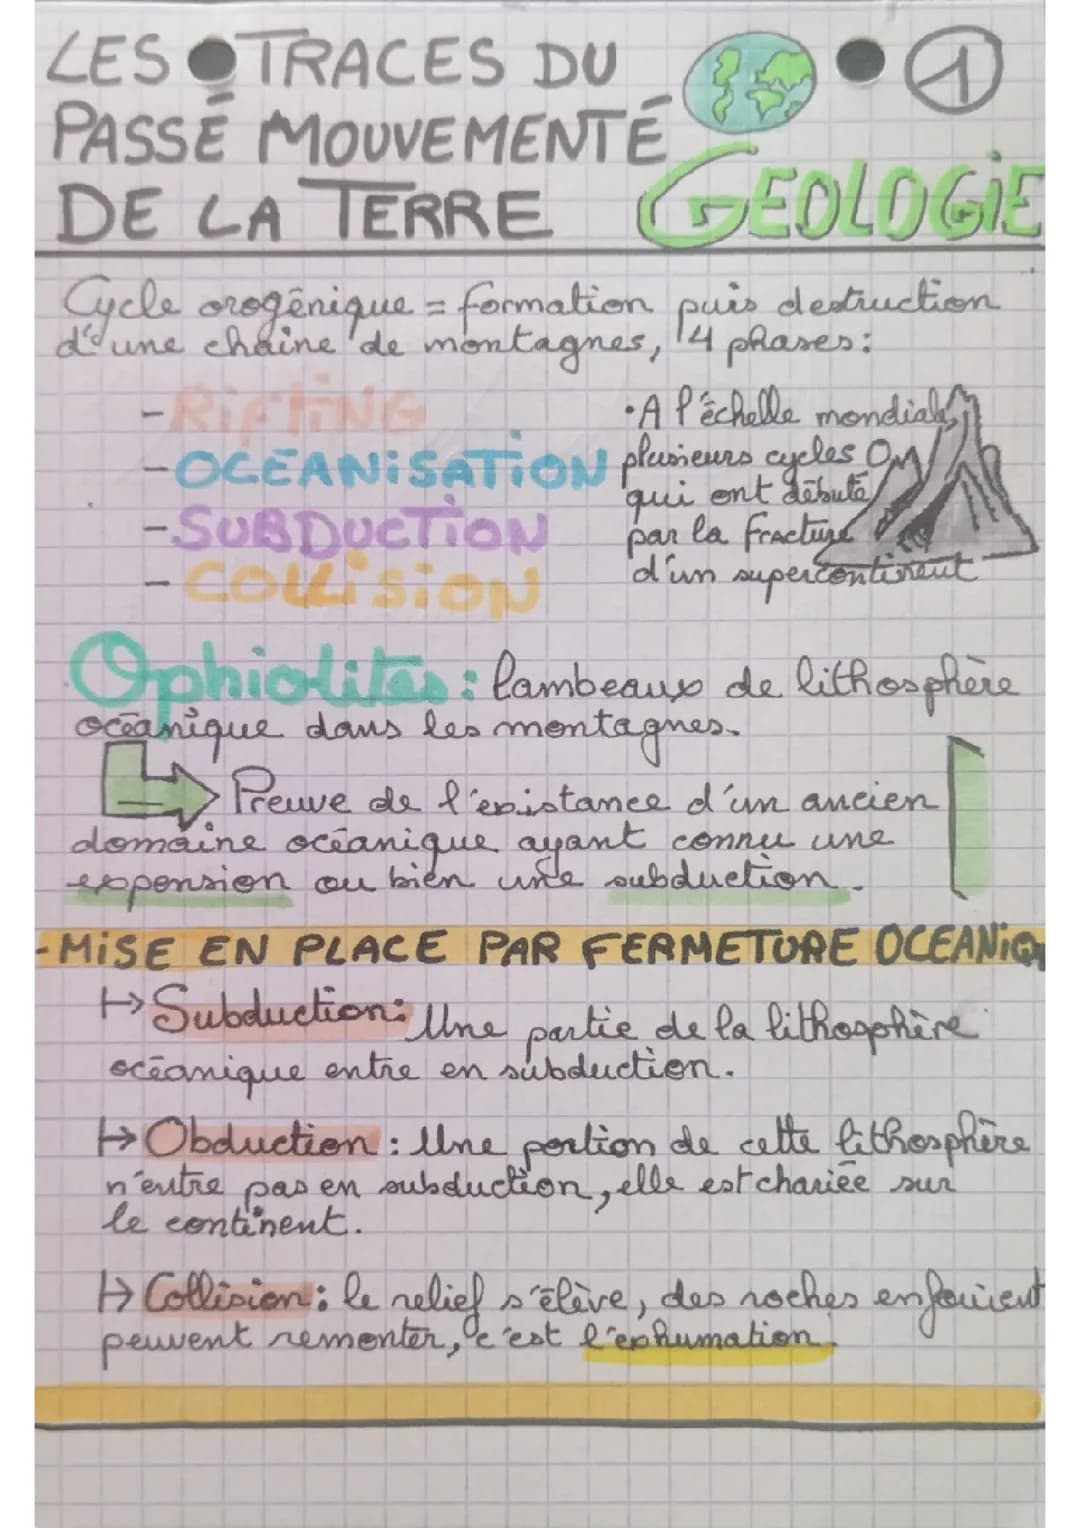 LES TRACES DU
PASSÉ MOUVEMENTÉ
DE LA TERRE
1
GEOLOGIE
Cycle orogénique = formation puis destruction
d'une chaine de montagnes, 4 phases:
- RIFTING
- OCÉANISATION
- SUBDUCTION
- COLLISION
• A l'échelle mondiale,
plusieurs cycles
qui ont débuté
par la fracture
d'un supercontinent
Ophiolites : lambeaux de lithosphère
océanique dans les montagnes.
Preuve de l'existance d'un ancien
domaine océanique ayant connu une
expension ou bien une subduction.
- MISE EN PLACE PAR FERMETURE OCEANIQ
↦ Subduction: Une partie de la lithosphère
océanique entre en subduction.
↦ Obduction : Une portion de cette lithosphère
n'entre pas en subduction, elle est chariée sur
le continent.
↦ Collision : le relief s'élève, des roches enfouient
peuvent remonter, c'est l'exhumation.